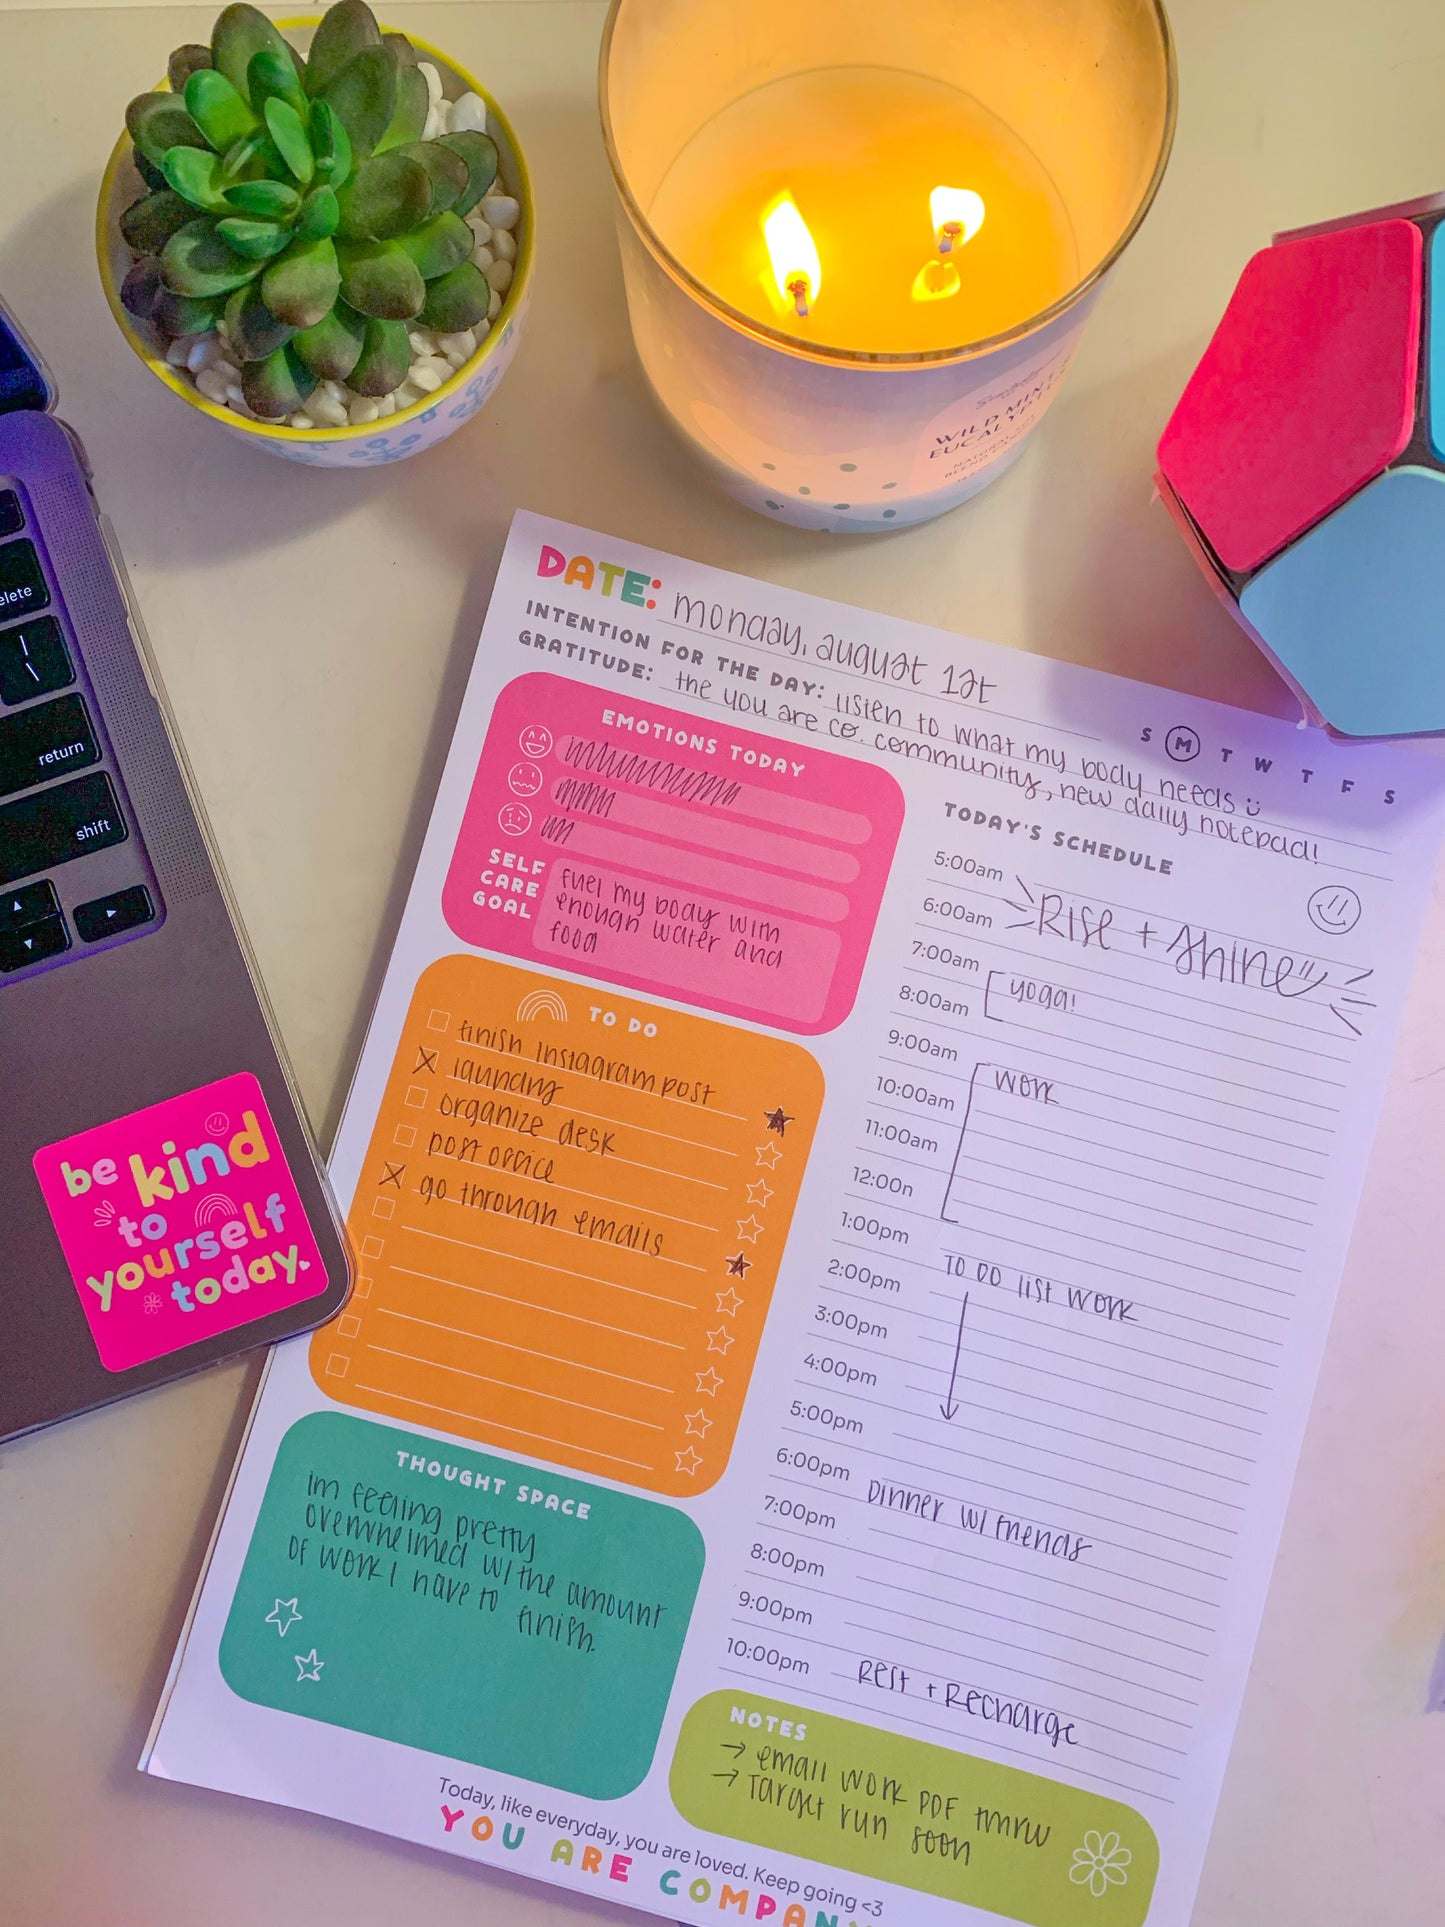 WILD MINT
EUCALYPTUS
elete
return
shift
be kind
to
yourself
today.
DATE: monday, august 1st
INTENTION FOR THE DAY: listen to what my body needs
GRATITUDE: the you are co. community, new daily notepad!
S M T W T F S
EMOTIONS TODAY
SELF
CARE
GOAL
fuel my body with
enough water and
food
TO DO
finish instagram post
laundry
organize desk
post office
go through emails
THOUGHT SPACE
im feeling pretty
overwhelmed w/ the amount
of work I have to finish.
TODAY'S SCHEDULE
5:00am
6:00am Rise + shine
7:00am yoga!
8:00am
9:00am work
10:00am
11:00am
12:00n
1:00pm TO DO list work
2:00pm
3:00pm
4:00pm
5:00pm
6:00pm Dinner w/ friends
7:00pm
8:00pm
9:00pm
10:00pm Rest + Recharge
NOTES
→ email work PDF tmrw
→ Target run soon
Today, like everyday, you are loved. Keep going <3
YOU ARE COMPANY